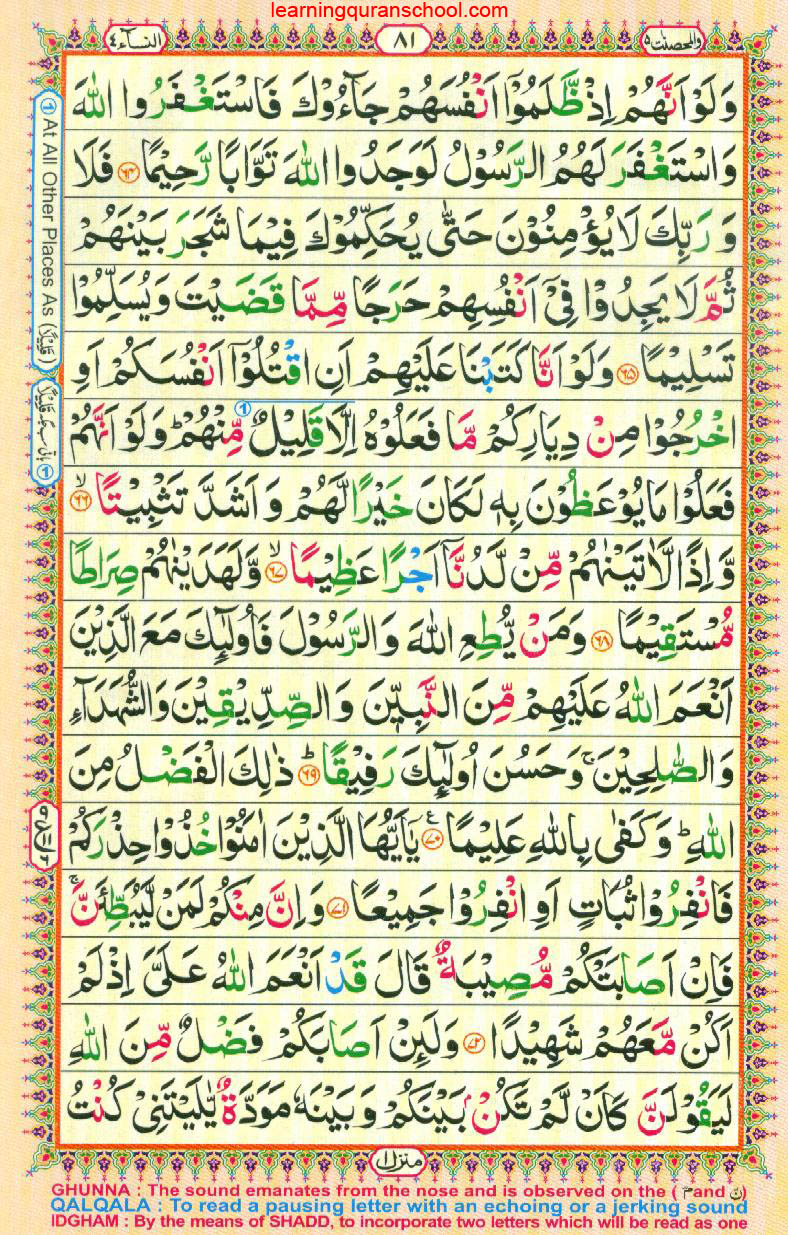 learningquranschool.com
والمحصنت ٥
٨١
النساء ٤
وَلَوْ اَنَّهُمْ اِذْ ظَّلَمُوْۤا اَنْفُسَهُمْ جَآءُوْكَ فَاسْتَغْفَرُوا اللّٰهَ
وَاسْتَغْفَرَ لَهُمُ الرَّسُوْلُ لَوَجَدُوا اللّٰهَ تَوَّابًا رَّحِيْمًا ﴿٦٤﴾ فَلَا
وَ رَبِّكَ لَا يُؤْمِنُوْنَ حَتّٰى يُحَكِّمُوْكَ فِيْمَا شَجَرَ بَيْنَهُمْ
ثُمَّ لَا يَجِدُوْا فِيْۤ اَنْفُسِهِمْ حَرَجًا مِّمَّا قَضَيْتَ وَيُسَلِّمُوْا
تَسْلِيْمًا ﴿٦٥﴾ وَلَوْ اَنَّا كَتَبْنَا عَلَيْهِمْ اَنِ اقْتُلُوْۤا اَنْفُسَكُمْ اَوِ
اخْرُجُوْا مِنْ دِيَارِكُمْ مَّا فَعَلُوْهُ اِلَّا قَلِيْلٌ مِّنْهُمْ ؕ وَلَوْ اَنَّهُمْ
فَعَلُوْا مَا يُوْعَظُوْنَ بِهٖ لَكَانَ خَيْرًا لَّهُمْ وَ اَشَدَّ تَثْبِيْتًا ۙ﴿٦٦﴾
وَّ اِذًا لَّاٰتَيْنٰهُمْ مِّنْ لَّدُنَّاۤ اَجْرًا عَظِيْمًا ۙ﴿٦٧﴾ وَّلَهَدَيْنٰهُمْ صِرَاطًا
مُّسْتَقِيْمًا ﴿٦٨﴾ وَمَنْ يُّطِعِ اللّٰهَ وَ الرَّسُوْلَ فَاُولٰٓئِكَ مَعَ الَّذِيْنَ
اَنْعَمَ اللّٰهُ عَلَيْهِمْ مِّنَ النَّبِيّٖنَ وَ الصِّدِّيْقِيْنَ وَالشُّهَدَآءِ
وَ الصّٰلِحِيْنَ ۚ وَحَسُنَ اُولٰٓئِكَ رَفِيْقًا ؕ﴿٦٩﴾ ذٰلِكَ الْفَضْلُ مِنَ
اللّٰهِ ؕ وَ كَفٰى بِاللّٰهِ عَلِيْمًا ﴿٧٠﴾ يٰۤاَيُّهَا الَّذِيْنَ اٰمَنُوْا خُذُوْا حِذْرَكُمْ
فَانْفِرُوْا ثُبَاتٍ اَوِ انْفِرُوْا جَمِيْعًا ﴿٧١﴾ وَ اِنَّ مِنْكُمْ لَمَنْ لَّيُبَطِّئَنَّ ۚ
فَاِنْ اَصَابَتْكُمْ مُّصِيْبَةٌ قَالَ قَدْ اَنْعَمَ اللّٰهُ عَلَيَّ اِذْ لَمْ
اَكُنْ مَّعَهُمْ شَهِيْدًا ﴿٧٢﴾ وَلَئِنْ اَصَابَكُمْ فَضْلٌ مِّنَ اللّٰهِ
لَيَقُوْلَنَّ كَاَنْ لَّمْ تَكُنْۢ بَيْنَكُمْ وَ بَيْنَهٗ مَوَدَّةٌ يّٰلَيْتَنِيْ كُنْتُ
① At All Other Places As (قَلِيْلًا)
منزل ١
GHUNNA : The sound emanates from the nose and is observed on the ( مّ and نّ)
QALQALA : To read a pausing letter with an echoing or a jerking sound
IDGHAM : By the means of SHADD, to incorporate two letters which will be read as one